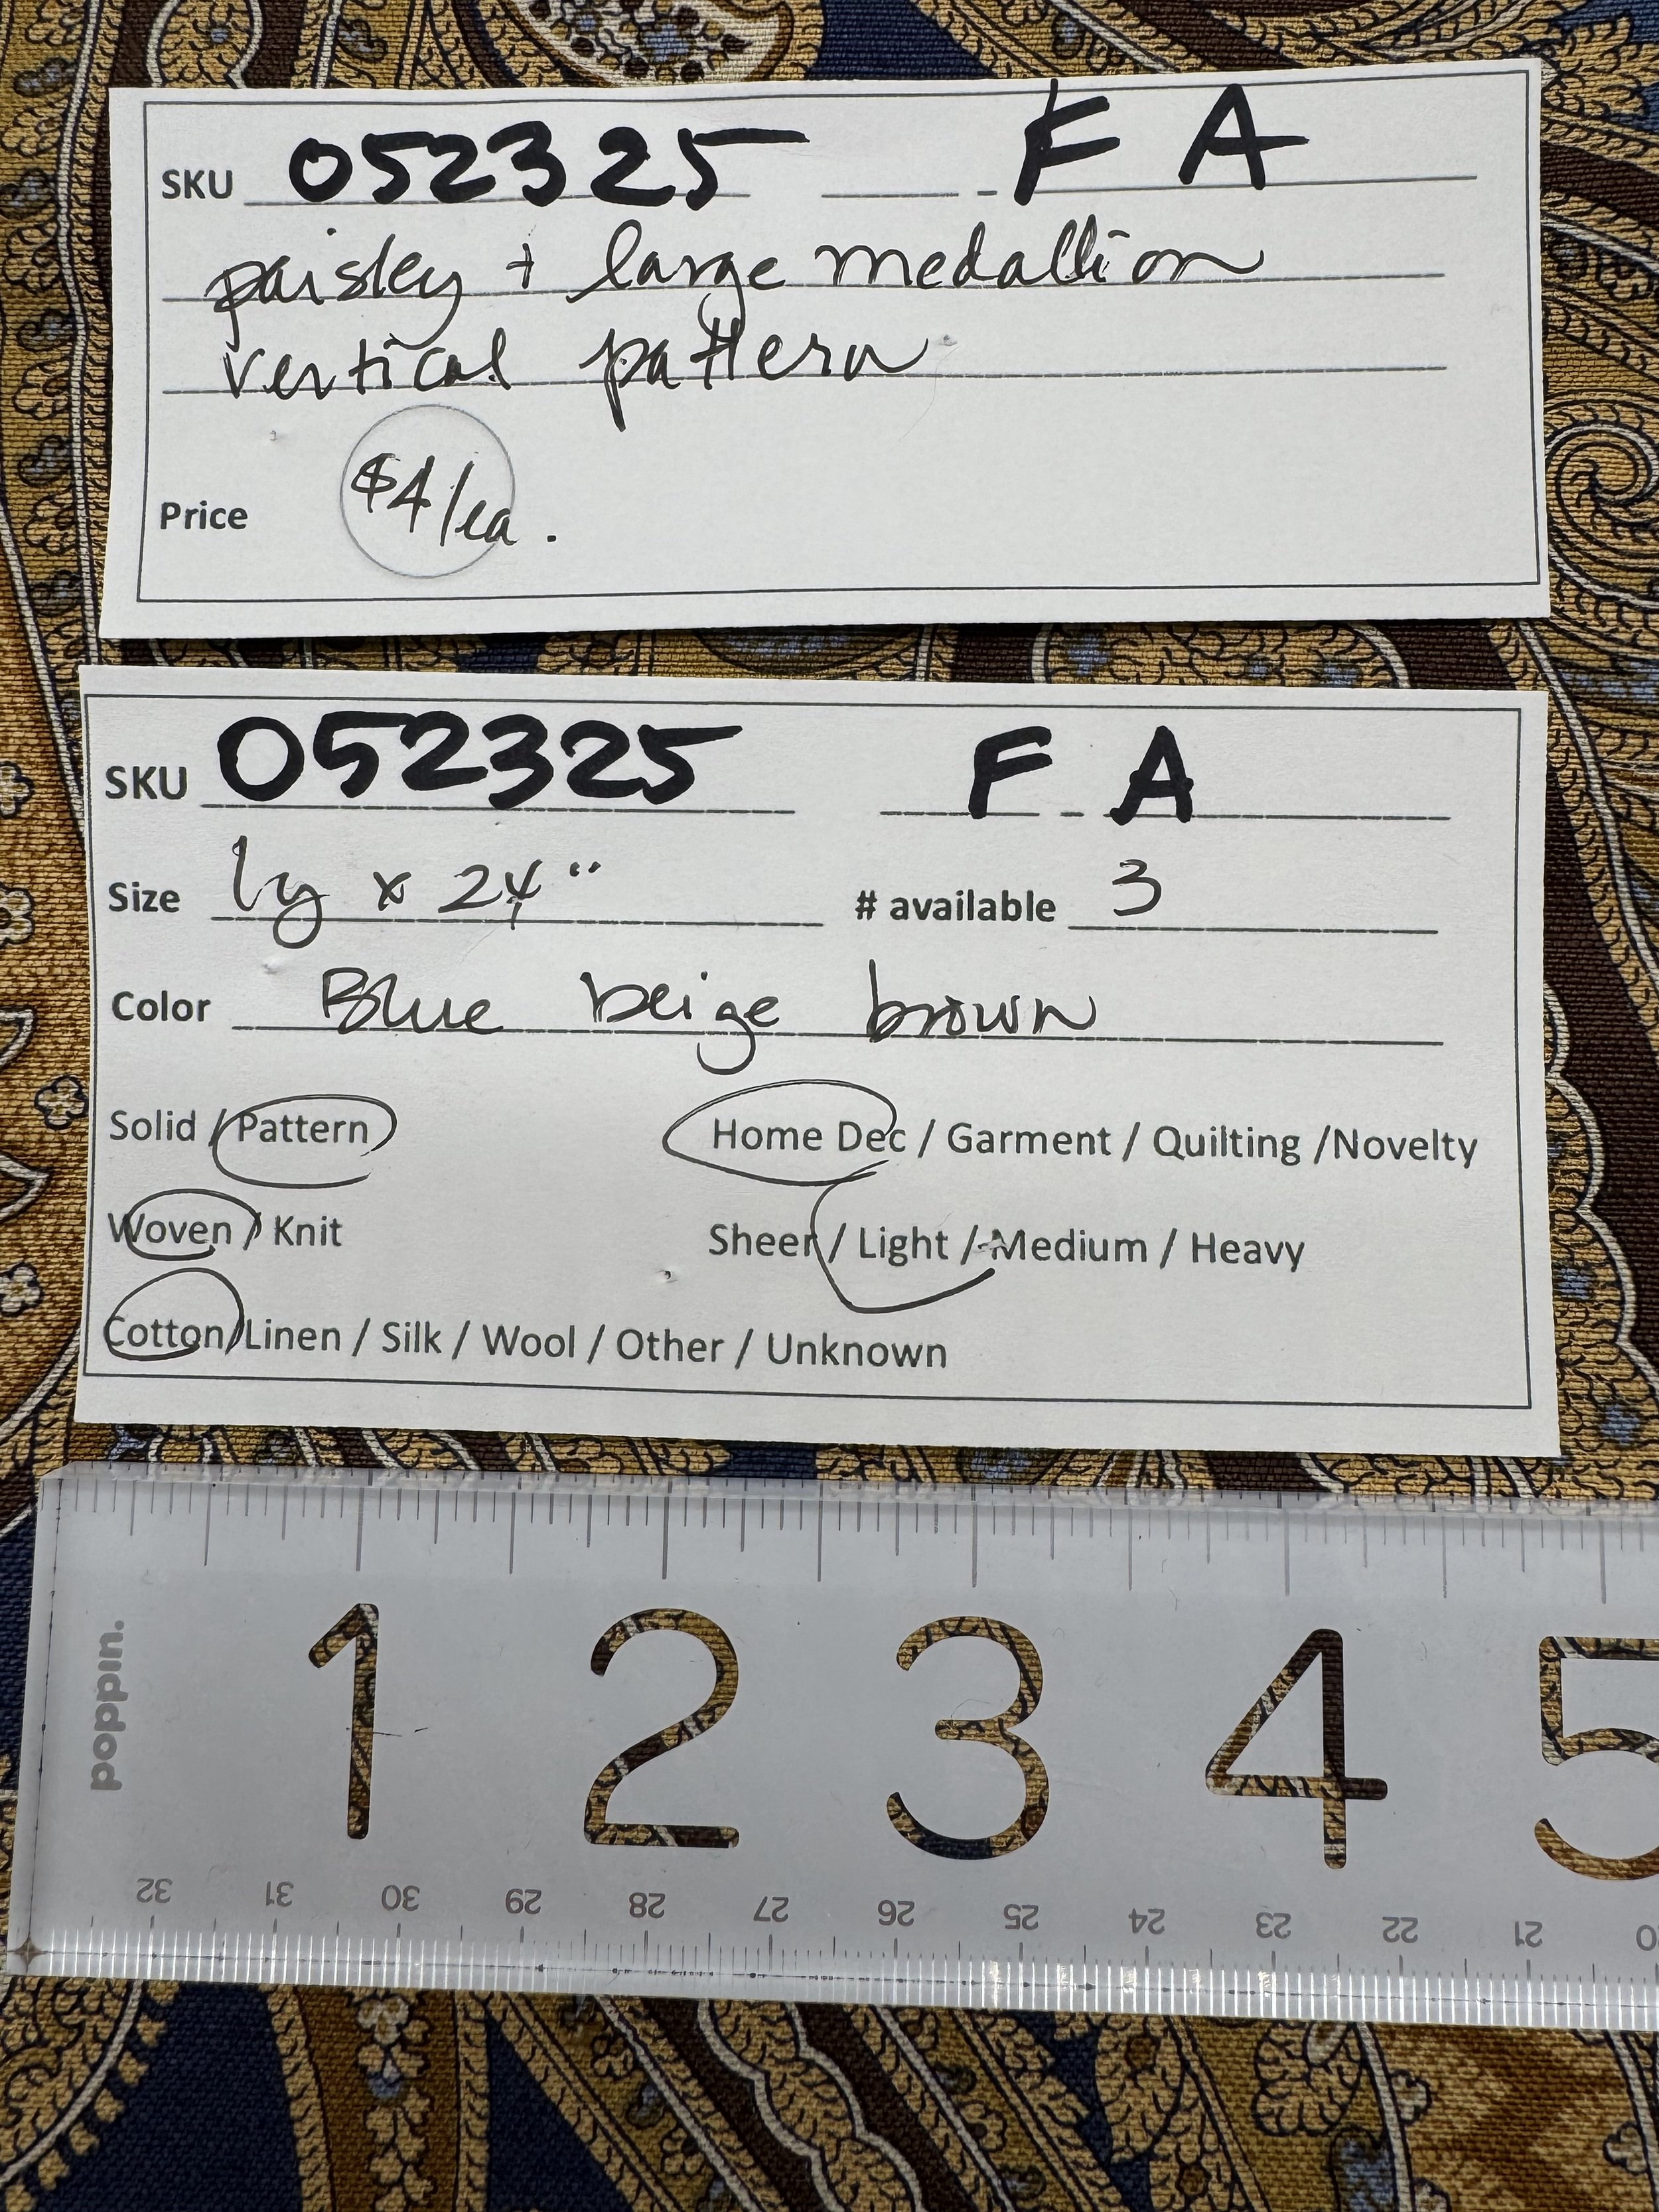 SKU 052325 - F A
paisley + large medallion
vertical pattern
Price $4/ea.
SKU 052325 F - A
Size 1y x 24" # available 3
Color Blue beige brown
Solid / Pattern Home Dec / Garment / Quilting /Novelty
Woven / Knit Sheer / Light / Medium / Heavy
Cotton/Linen / Silk / Wool / Other / Unknown
poppin.
1 2 3 4 5
32 31 30 29 28 27 26 25 24 23 22 21 20